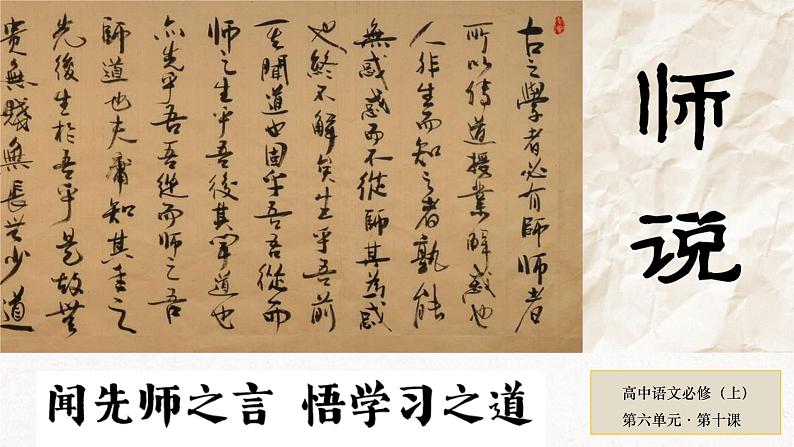 古之學者必有師師者
所以傳道授業解惑也
人非生而知之者孰能
無惑惑而不從師其為惑
也終不解矣生乎吾前
其聞道也固乎吾吾從而
師之生乎吾後其聞道也
亦先乎吾吾從而師之吾
師道也夫庸知其年之
先後生於吾乎是故無
貴無賤無長無少道
师说
闻先师之言 悟学习之道
高中语文必修（上）
第六单元·第十课